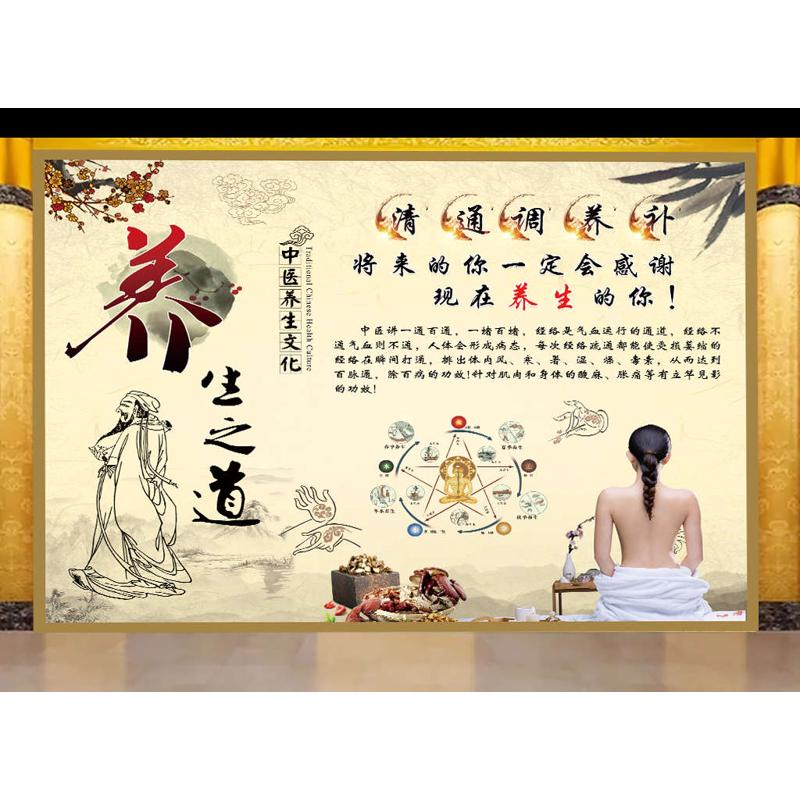 养生之道
中医养生文化
Traditional Chinese Health Culture
清通调养补
将来的你一定会感谢
现在养生的你！
中医讲一通百通，一堵百堵，经络是气血运行的通道，经络不
通气血则不通，人体会形成病态，每次经络疏通都能使受损萎缩的
经络在瞬间打通，排出体内风、寒、暑、湿、燥、毒素，从而达到
百脉通，除百病的功效！针对肌肉和身体的酸麻、胀痛等有立竿见影
的功效！